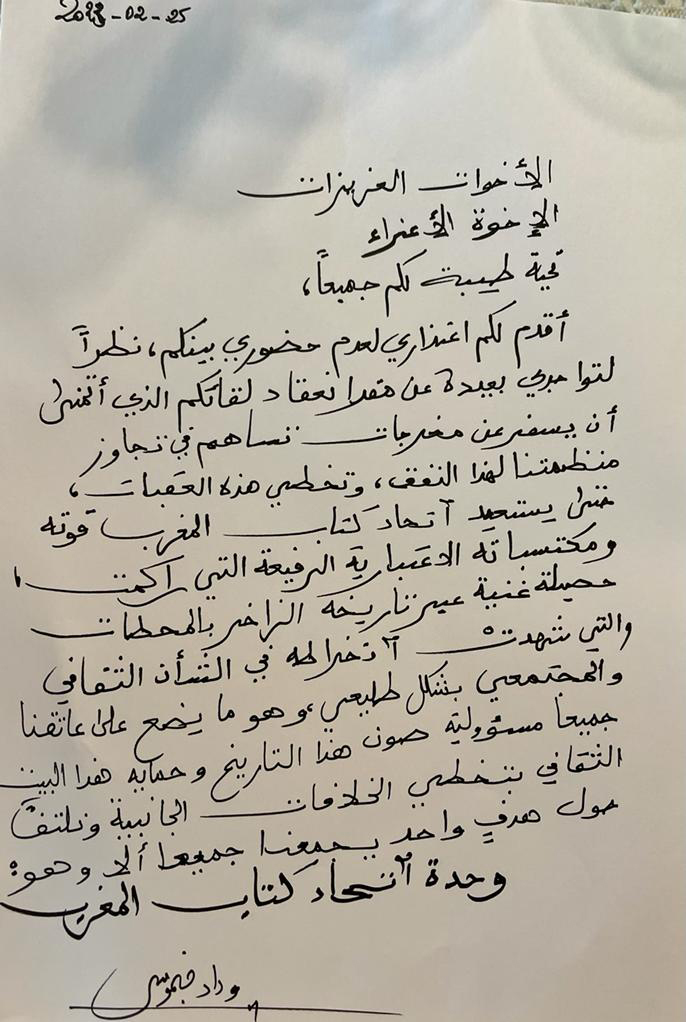 2023-02-25
الأخوات العزيزات
الإخوة الأعزاء
تحية طيبة لكم جميعاً،
أقدم لكم اعتذاري لعدم حضوري بينكم، نظراً
لتواجدي بعيدة عن مقر انعقاد لقائكم الذي أتمنى
أن يسفر عن مخرجات تساهم في تجاوز
منظمتنا لهذا النفق، وتخطي هذه العقبات،
حتى يستعيد اتحاد كتاب المغرب قوته
ومكتسباته الاعتبارية الرفيعة التي راكمت
حصيلة غنية عبر تاريخه الزاخر بالمحطات
والتي شهدت انخراطه في الشأن الثقافي
والمجتمعي بشكل طليعي، وهو ما يضع على عاتقنا
جميعا مسؤولية صون هذا التاريخ وحماية هذا البيت
الثقافي بتخطي الخلافات الجانبية ونلتف
حول هدفٍ واحد يجمعنا جميعا ألا وهو:
وحدة اتحاد كتاب المغرب
وداد بنموسى